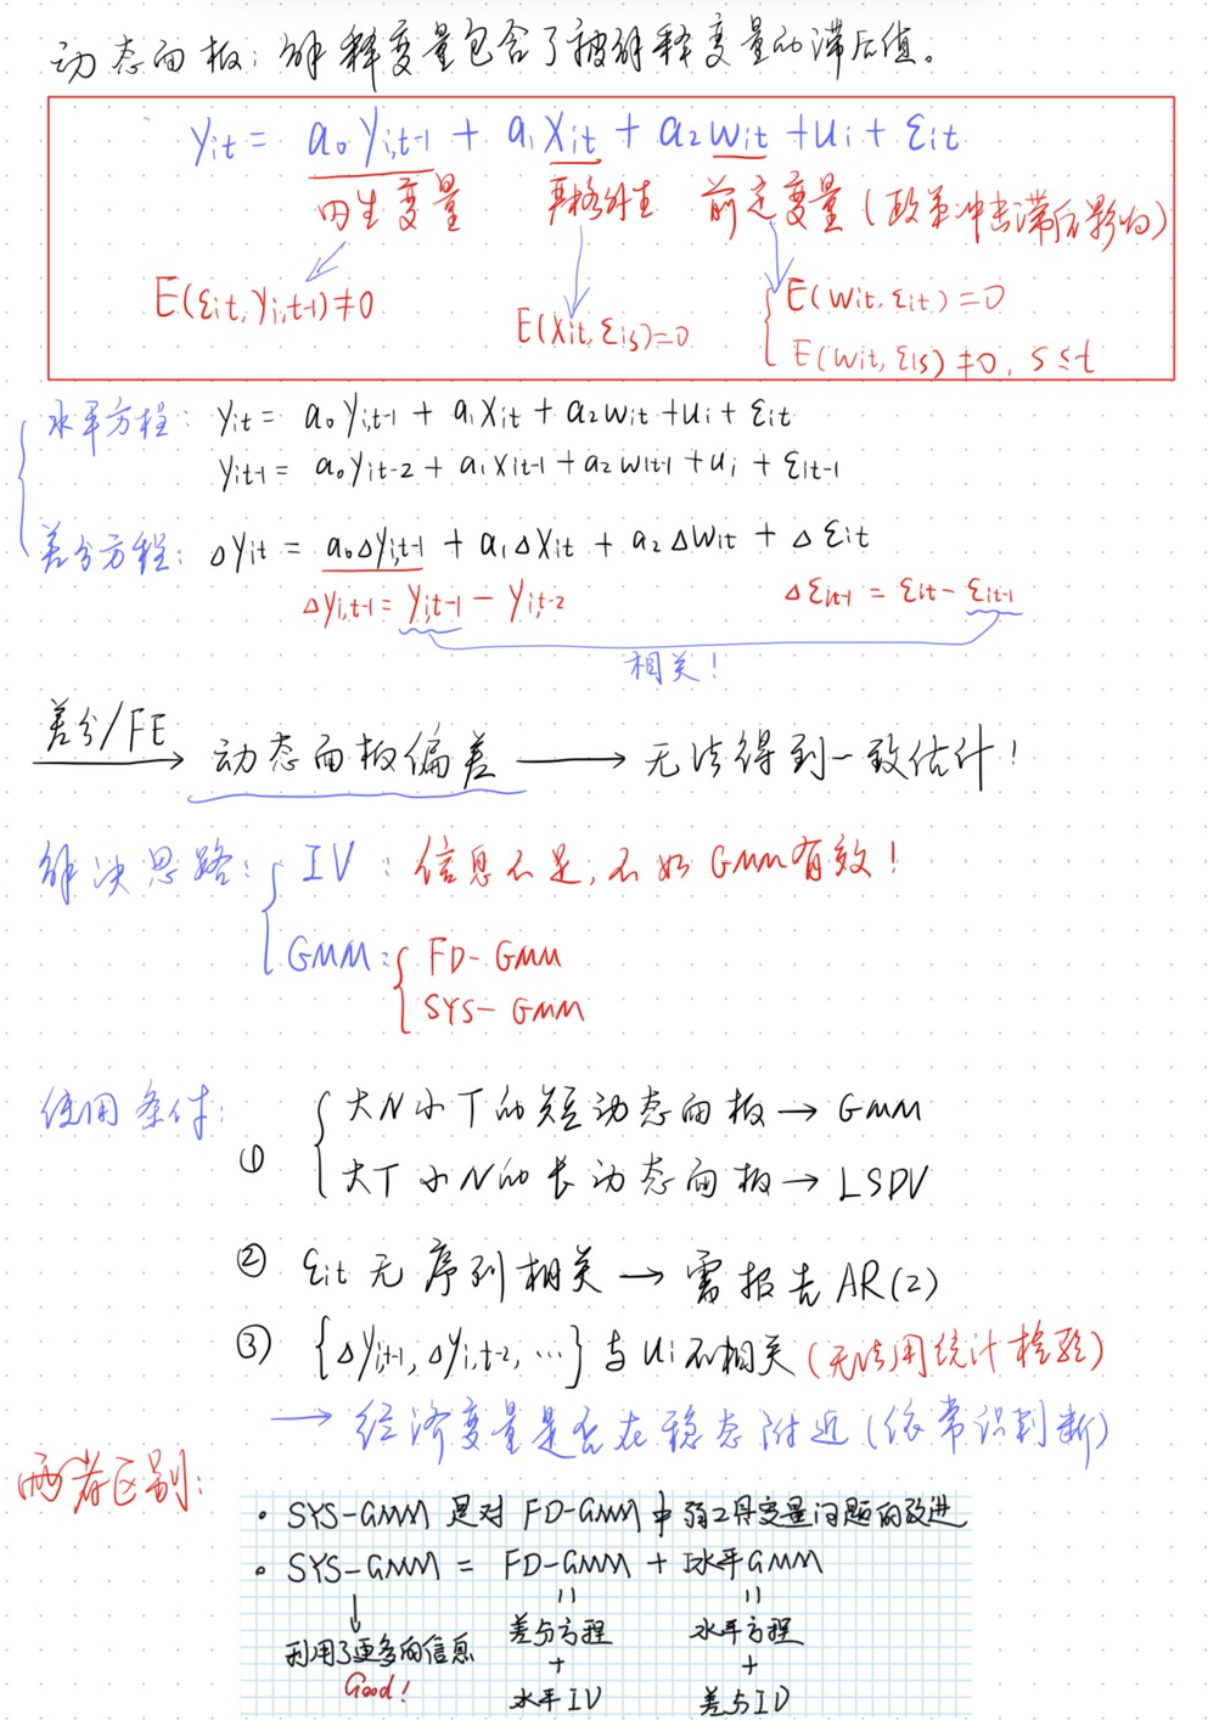 动态面板：解释变量包含了被解释变量的滞后值。
yit = a0 yi,t-1 + a1 Xit + a2 wit + ui + εit
内生变量 严格外生 前定变量（政策冲击滞后影响）
E(εit, yi,t-1) ≠ 0 E(Xit, εis)=0 { E(wit, εit) = 0
E(wit, εis) ≠ 0, s ≤ t
水平方程： yit = a0 yi,t-1 + a1 Xit + a2 wit + ui + εit
yit-1 = a0 yit-2 + a1 Xit-1 + a2 wit-1 + ui + εit-1
差分方程： Δyit = a0Δyi,t-1 + a1ΔXit + a2ΔWit + Δεit
Δyi,t-1 = yi,t-1 - yi,t-2 Δεit-1 = εit - εit-1
相关！
差分/FE → 动态面板偏差 → 无法得到一致估计！
解决思路： { IV：信息不足，不如GMM有效！
GMM： { FD-GMM
SYS-GMM
使用条件：
① { 大N小T的短动态面板 → GMM
大T小N的长动态面板 → LSDV
② εit 无序列相关 → 需报告AR(2)
③ {Δyi,t-1, Δyi,t-2, …} 与 ui 不相关（无法用统计检验）
→ 经济变量是否在稳态附近（依常识判断）
两者区别：
• SYS-GMM 是对 FD-GMM 中弱工具变量问题的改进
• SYS-GMM = FD-GMM + 水平GMM
↓ || ||
利用了更多的信息 差分方程 水平方程
Good! + +
水平IV 差分IV